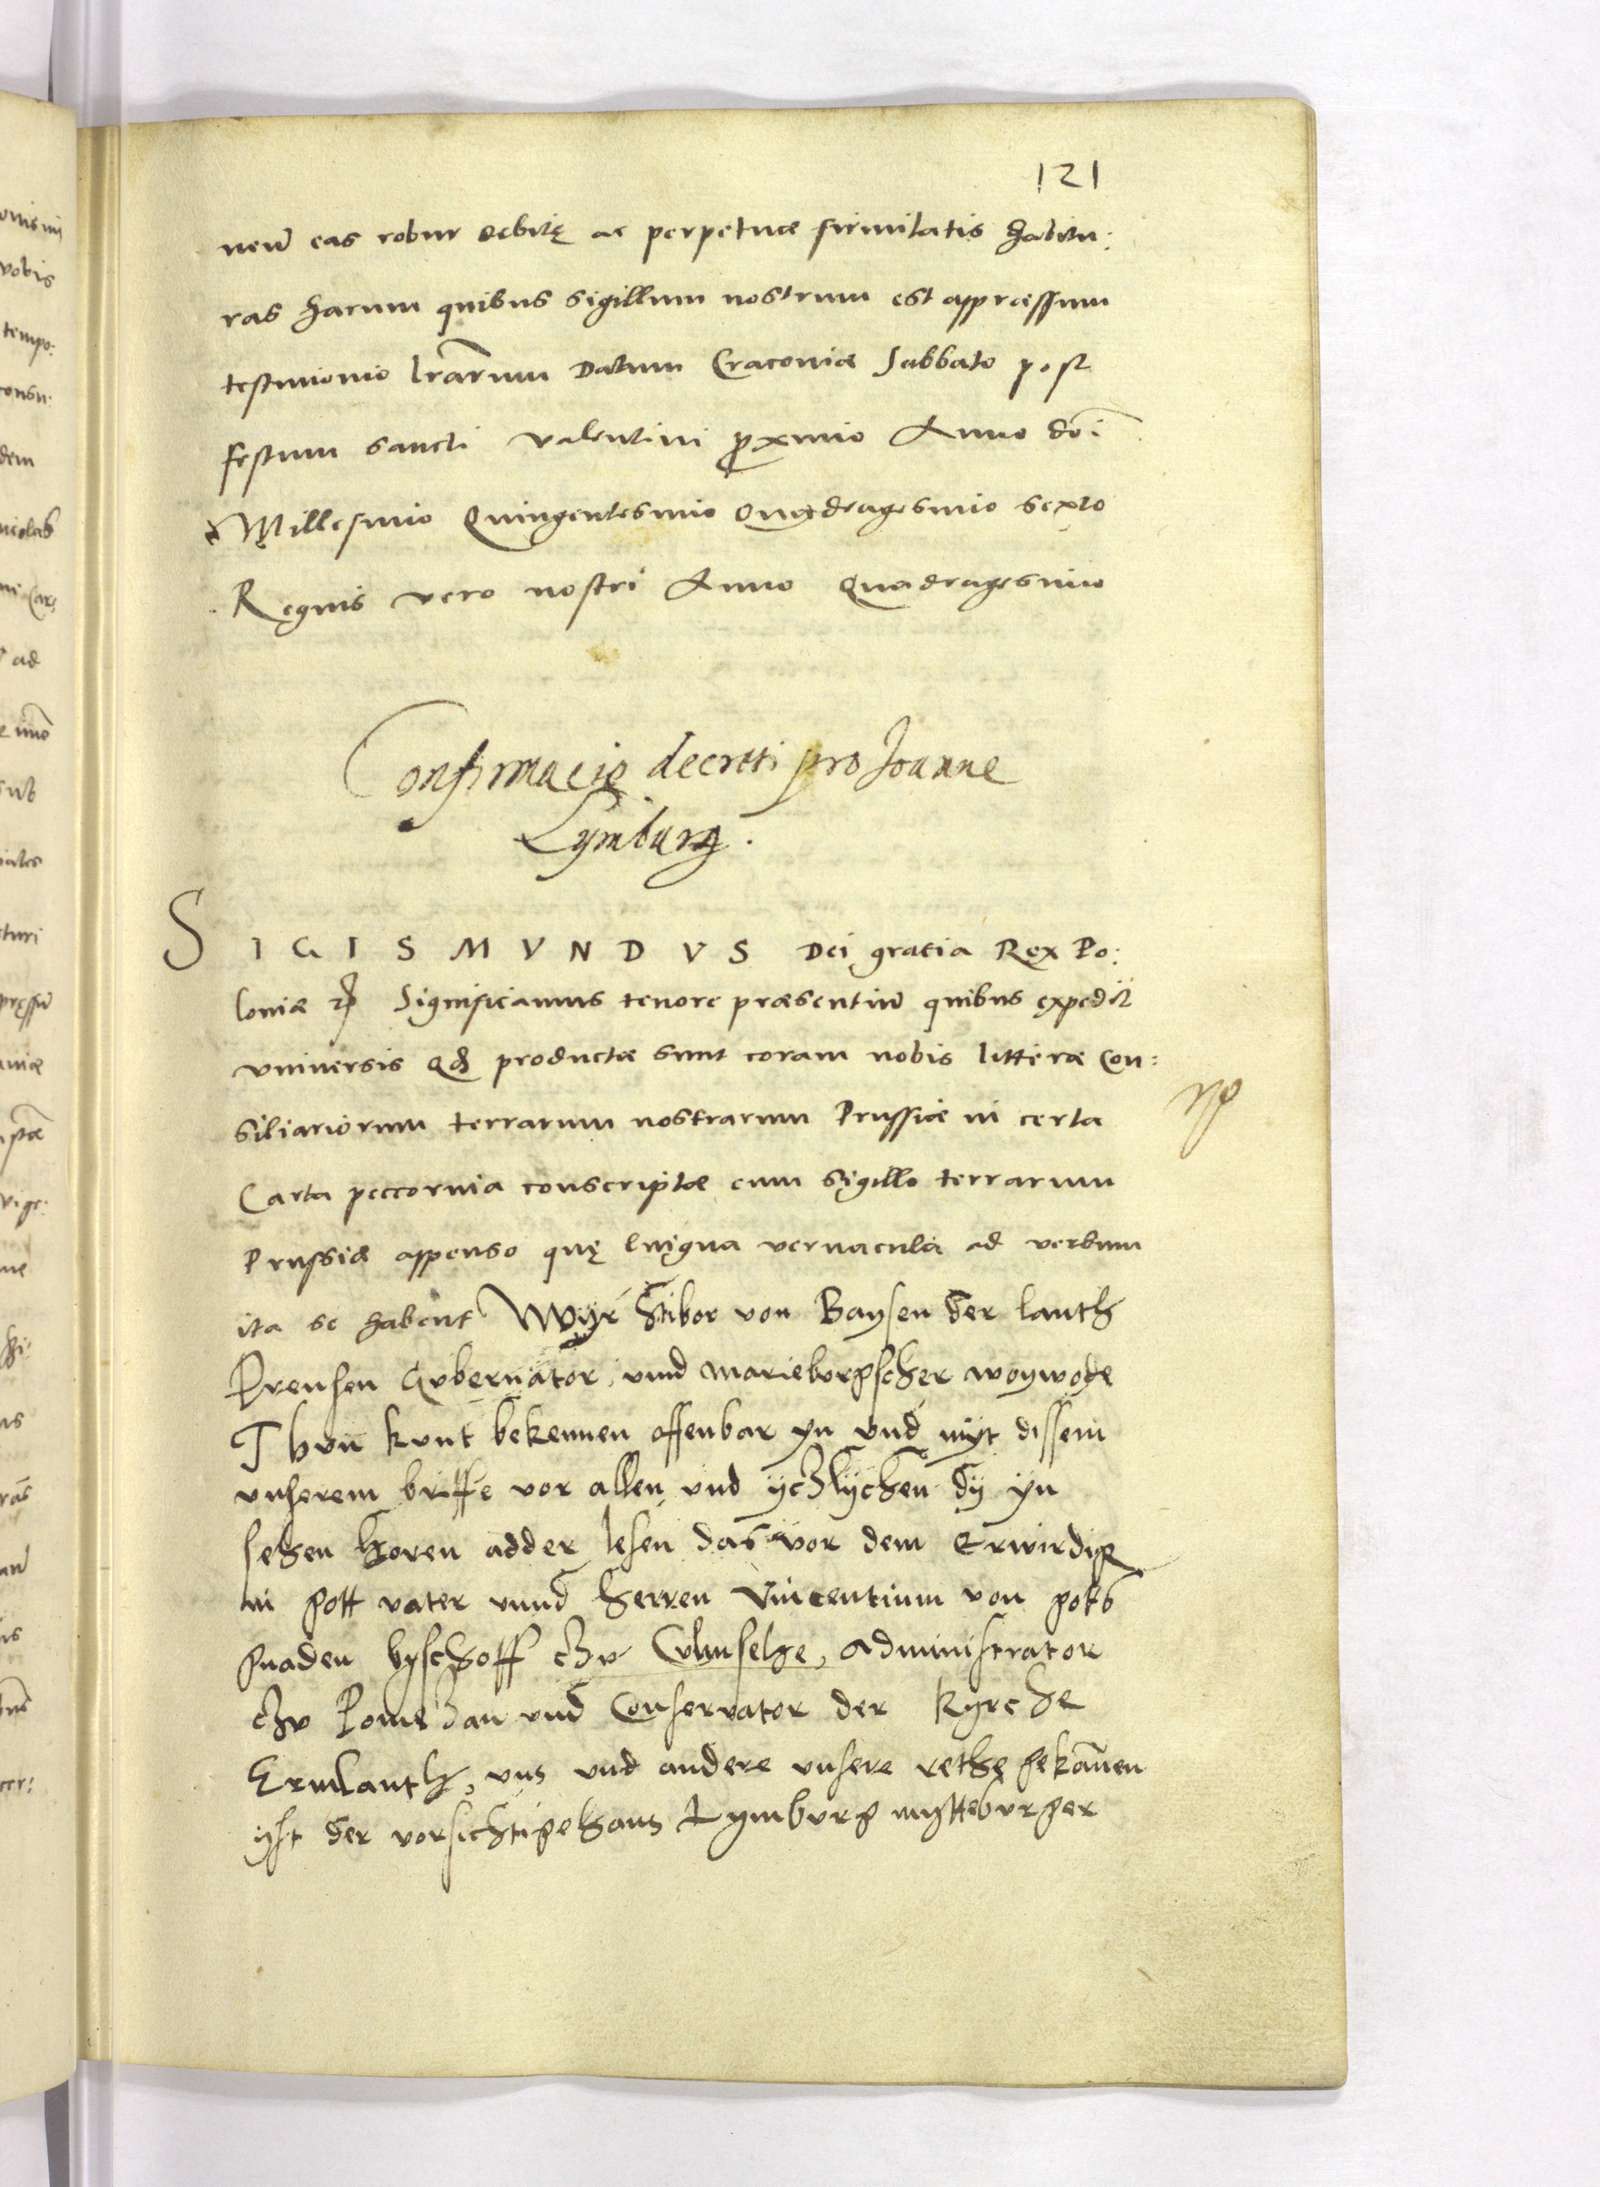 121
neum eas robur debitę ac perpetuæ firmitatis habitu:
ras harum quibus sigillum nostrum est appræssum
testimonio lrarum Datum Cracoviæ Sabbato post
festum sancti Valentini proximio Anno doi
Millesimo Quingentesimo Quadragesimo sexto
Regnis vero nostri Anno Quadragesimo
Confirmacio decreti pro Joanne
Lymburg.
SIGISMVNDVS Dei gratia Rex Po:
loniæ Significamus tenore præsentium quibus expedit
vniuersis qd productæ sunt coram nobis litteræ Con:
siliariorum terrarum nostrarum Prussiæ in certa
Carta peccornia conscriptæ cum sigillo terrarum
Prussiæ appenso quę lingua vernacula ad verbum
ita se habent Wÿr Stibor von Baysen der lanth
Preusen Gvbernator, vnd Marieborgscher woywode
Thun kvnt bekennen offenbar yn vnd myt dissem
vnserem briffe vor allen vnd ÿczlÿchen dÿ yn
sehen horen adder lesen das vor dem Erwirdig
in gott vater vnnd herren Vincentium von gots
gnaden byschoff czv Culmsehe, Administrator
czv Pomezan vnd Conservator der kyrche
Ermlanth, vns vnd andere vnsere rethe gekamen
ÿst der vorsichtige hans Lymbvrg mytteburger